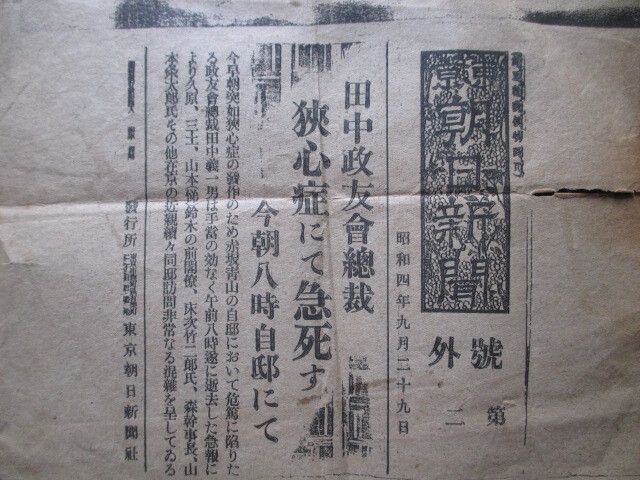 東京朝日新聞
號外
第二
昭和四年九月二十九日
田中政友會總裁
狹心症にて急死す
今朝八時自邸にて
今早朝突如狹心症の發作のため赤坂靑山の自邸において危篤に陷りた
る政友會總裁田中義一男は手當の効なく午前八時遂に逝去した急報に
より久原、三土、山本悌鈴木の前閣僚、床次竹二郎氏、森幹事長、山
本条太郎氏その他在京の近親續々同邸訪問非常なる混雜を呈してゐる
發行所
東京朝日新聞社